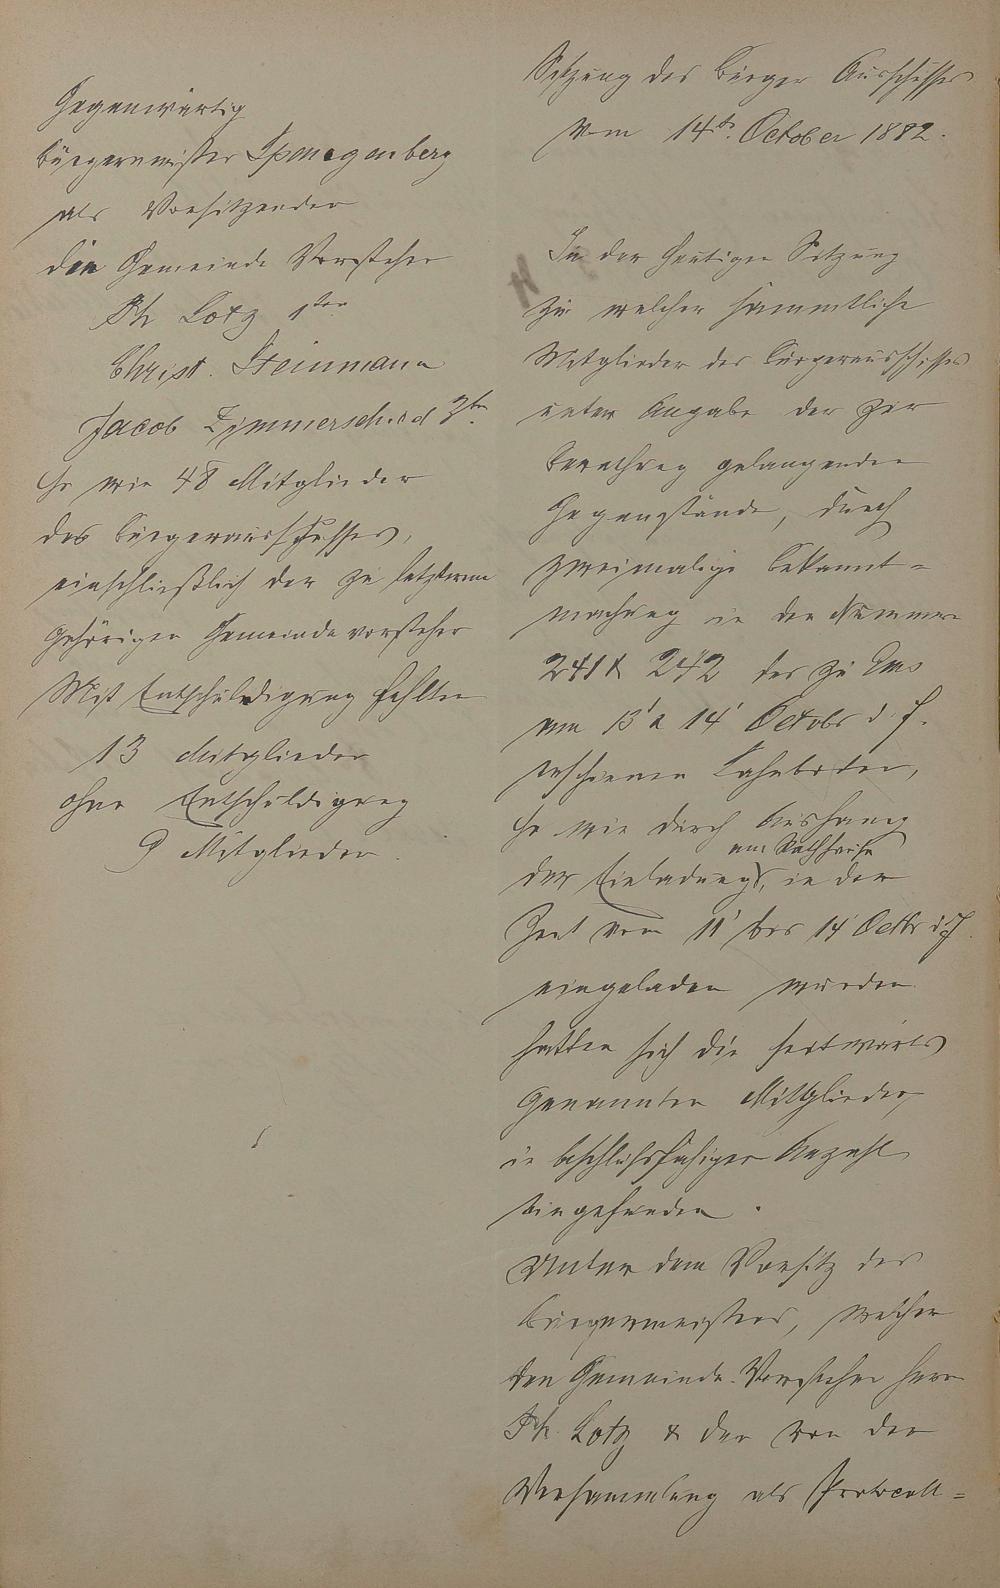 Gegenwärtig
Bürgermeister Spangenberg
als Vorsitzender
die Gemeinde Vorsteher
Ph Lotz 1ter
Christ. Steinmann
Jacob Zimmerschied 3ter
so wie 48 Mitglieder
des Bürgerausschusses,
einschließlich der zu letzterem
gehörigen Gemeindevorsteher
Mit Entschuldigung fehlten
13 Mitglieder
ohne Entschuldigung
9 Mitglieder.
Sitzung des Bürger Ausschusses
vom 14t. October 1882.
In der heutigen Sitzung
zu welcher sämmtliche
Mitglieder des Bürgerausschusses
unter Angabe der zur
Berathung gelangenden
Gegenstände, durch
zweimalige Bekannt=
machung in den Nummern
241 & 242 des zu Ems
am 13' & 14' Octobr d. J.
erschienen Lahnboten,
so wie durch Aushang
der Einladung, am Rathhause in der
Zeit vom 11' bis 14' Octbr d J.
eingeladen wurden
hatten sich die seitwärts
Genannten Mitglieder
in beschlußfähiger Anzahl
eingefunden.
Unter dem Vorsitz des
Bürgermeisters, welcher
den Gemeinde-Vorsteher Herrn
Ph. Lotz & der von der
Versammlung als Protocoll=